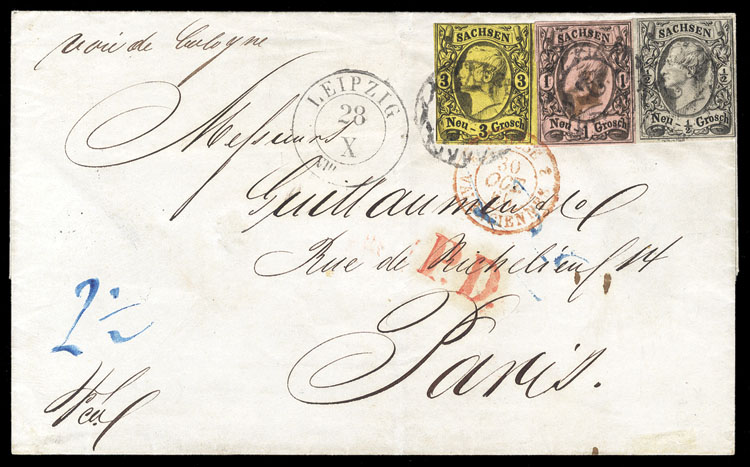 voie de Cologne
SACHSEN
3 3
Neu-3 Grosch
SACHSEN
1 1
Neu-1 Grosch
SACHSEN
½ ½
Neu-½ Grosch
LEIPZIG
28
X
VIII
30
OCT
2
P.D.
Messieurs
Guillaumin & Co
Rue de Richelieu 14
Paris.
2½